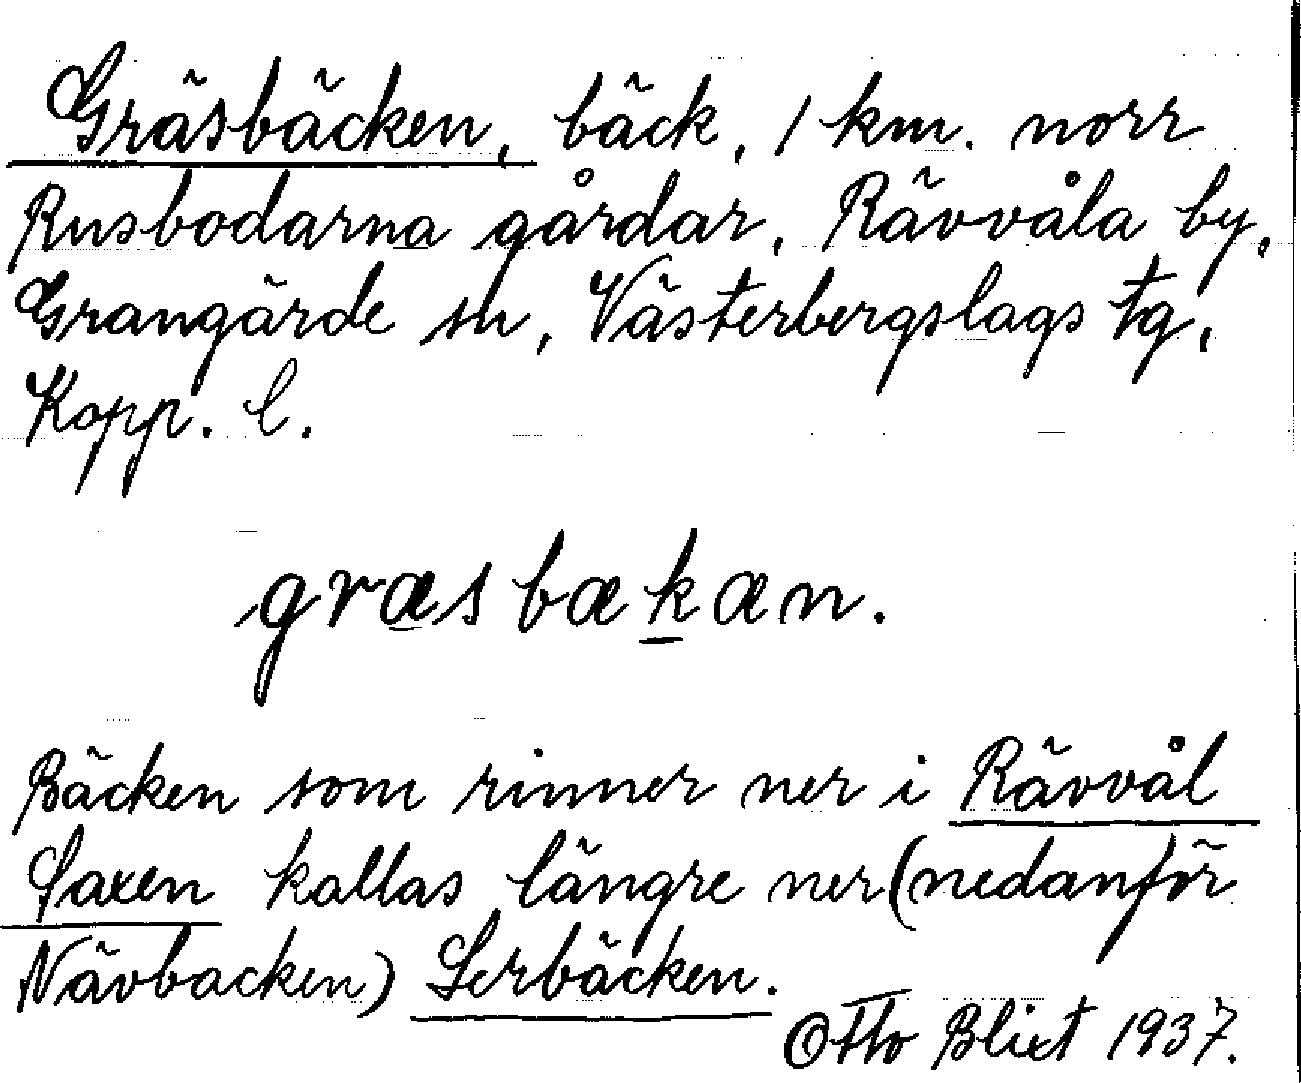 Gräsbäcken, bäck, 1 km. norr
Rusbodarna gårdar, Rävvåla by,
Grangärde sn, Västerbergslags tg,
Kopp. l.
græsbækæn.
Bäcken som rinner ner i Rävvål
Saxen kallas längre ner (nedanför
Nävbacken) Lerbäcken.
Otto Blixt 1937.